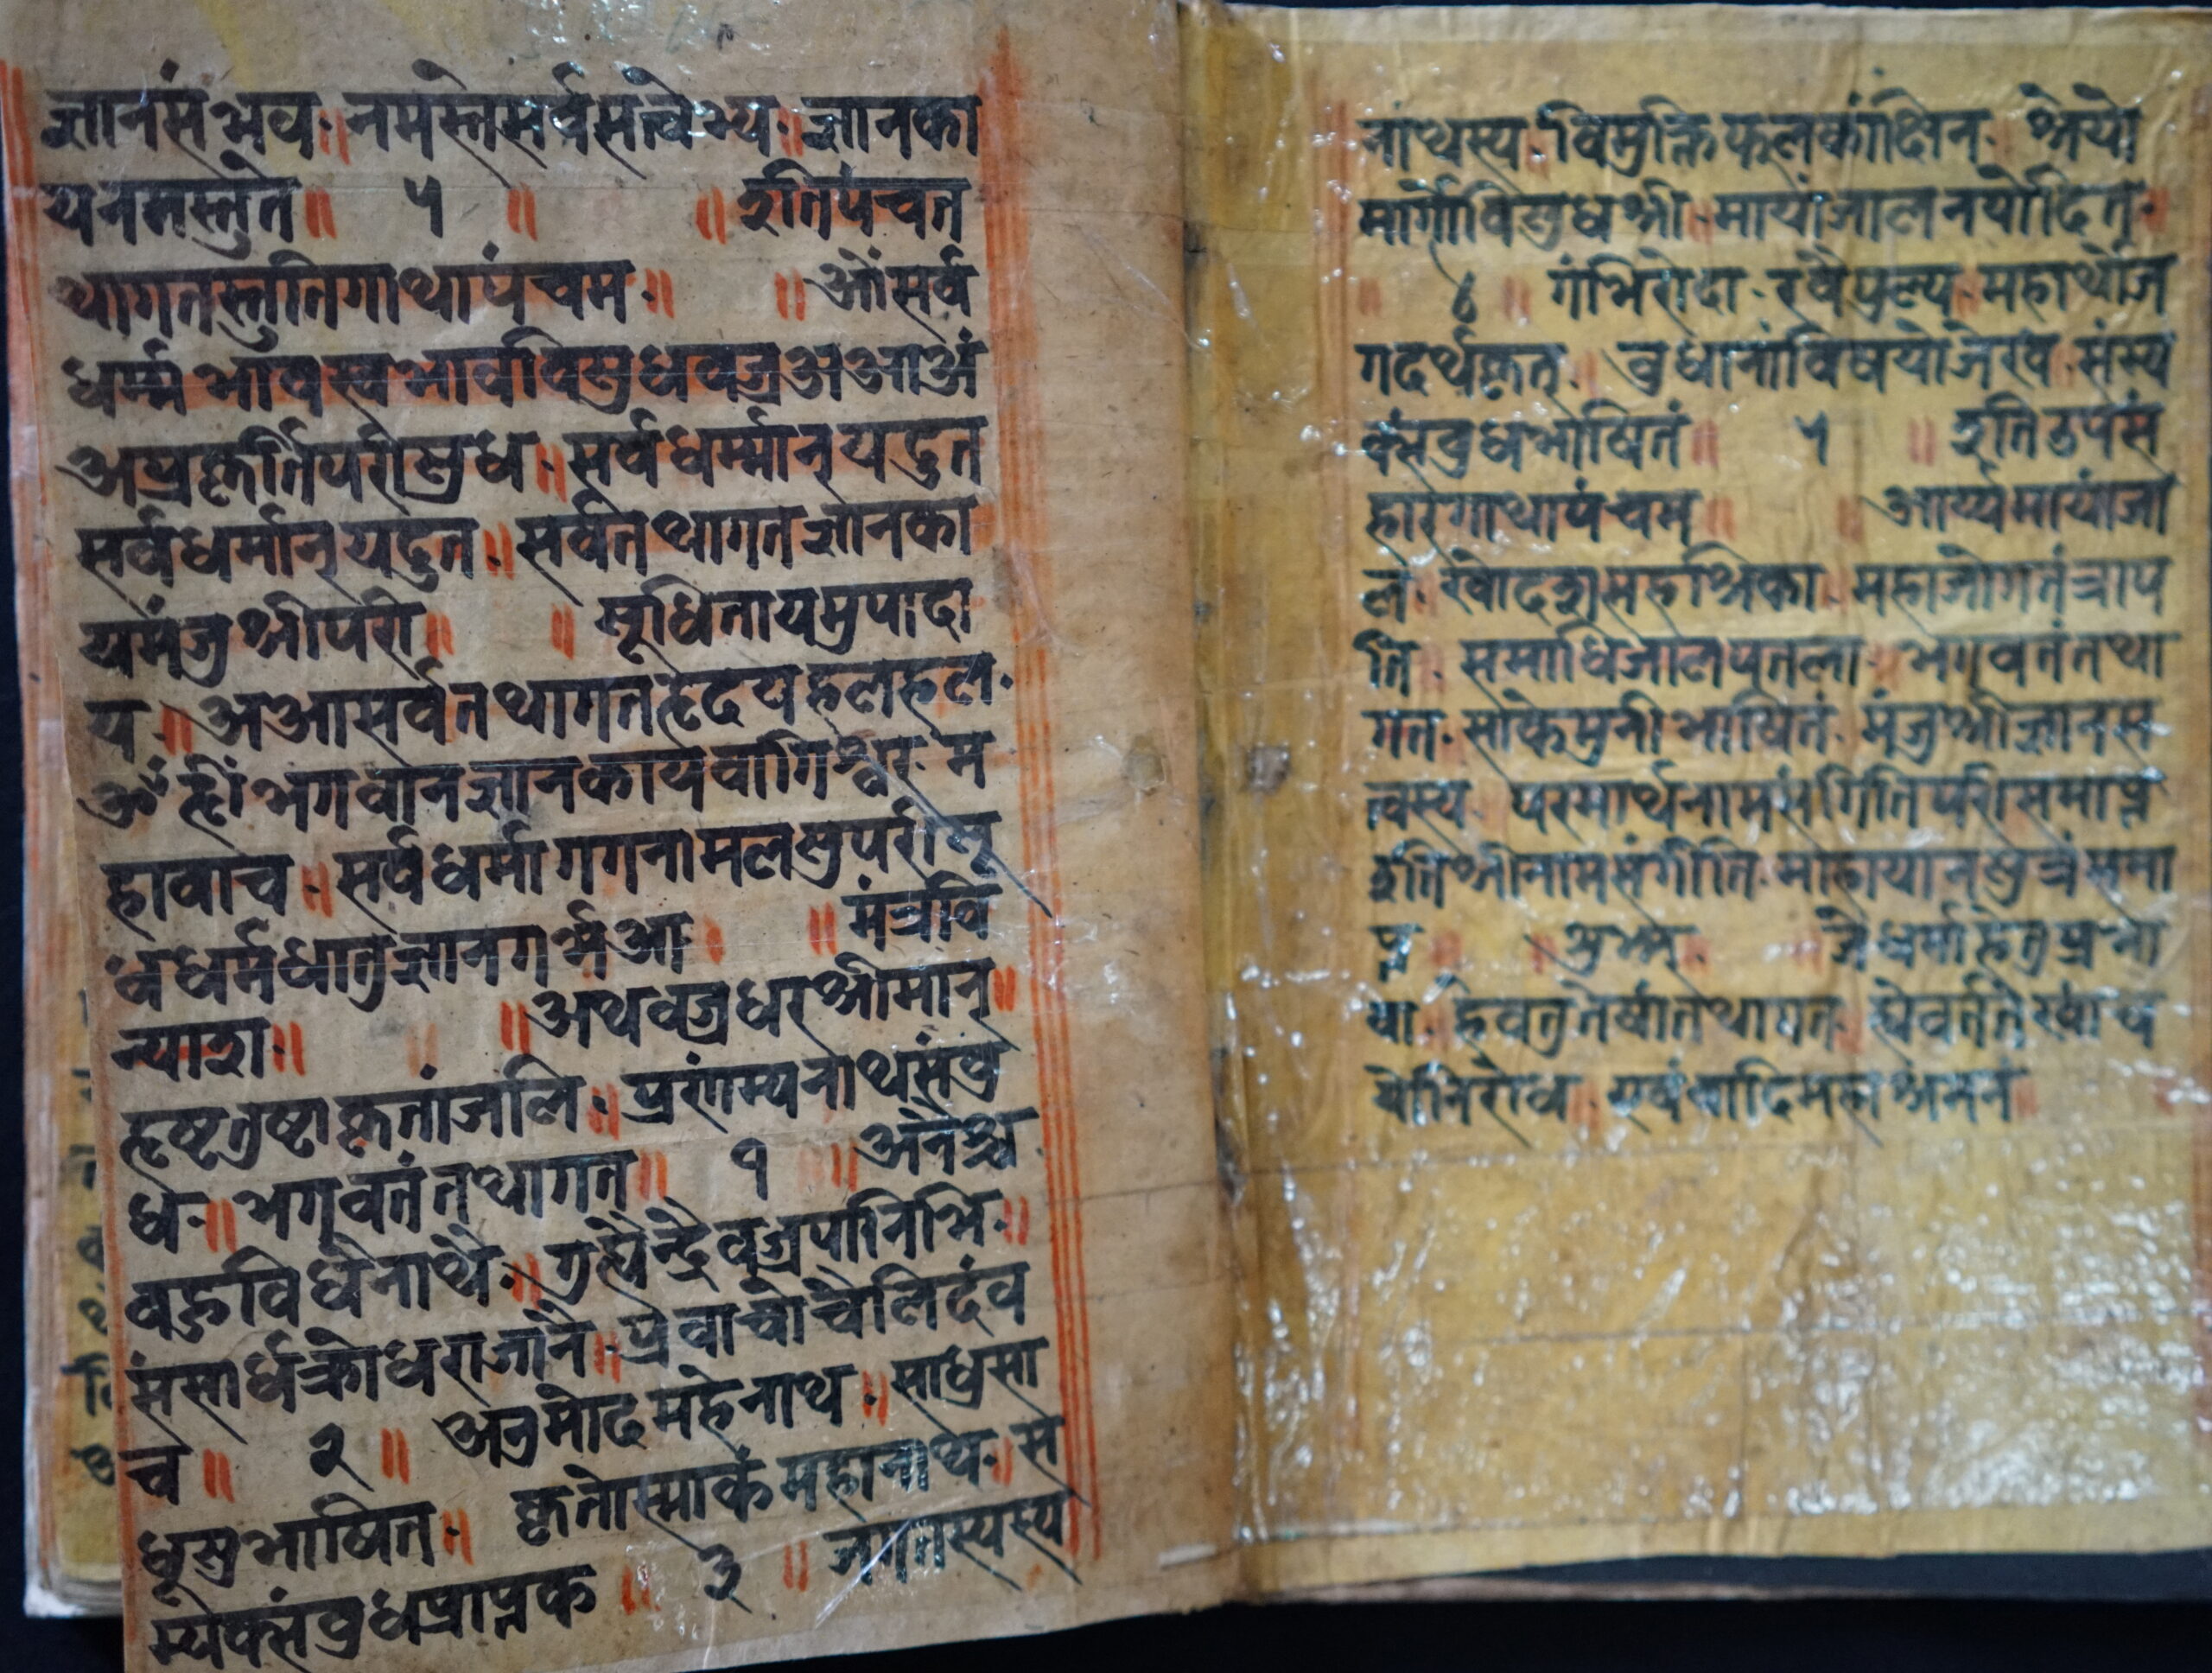 ज्ञानसंभव ॥ नमस्तेसर्वसत्वेभ्य ॥ ज्ञानका
यनमस्तुते ॥ ५ ॥ ॥ इतिपंचत
थागतस्तुतिगाथापंचम ॥ ॥ ओंसर्व
धर्म्मभावस्वभावविसुधवज्रअआअं
अप्रकृर्तिपरीसुध ॥ सर्वधर्म्मान्यदुत
सर्वधर्मान्यदुत ॥ सर्वतथागतज्ञानका
यमंजुश्रीपरी ॥ ॥ सूधितायमुपादा
य ॥ अआसर्वतथागतहृदयहलहल
ॐ ह्रीं भगवानज्ञानकायवागिश्वर म
हावाच ॥ सर्वधर्मागगनामलसुपरीसू
धधर्मधातुज्ञानगर्भआ ॥ मंत्रवि
न्याश ॥ ॥ अथवज्रधरश्रीमान् ॥
हृष्टतुष्टाकृतांजलि ॥ प्रणंम्यनाथसंबु
ध ॥ भगवतंतथागत ॥ १ ॥ अनैश्च
वहुविधैनाथै ॥ गुह्येन्द्रैवज्रपानिभि ॥
संसार्धक्रोधराजानै ॥ प्रैवाचोचैलिदंव
च ॥ २ ॥ अनुमोदमहेनाथ ॥ साधुसा
धूसुभाषित ॥ कृतोस्माकंमहानाथ ॥ स
म्यक्संबुधप्राप्नक ॥ ३ ॥ जगतस्यस्य
नाथस्य विमुक्तिफलकांक्षिन श्रेयो
मार्गोविसुधश्री ॥ मायांजालनयोदित ॥
॥ ४ ॥ गंभिरोदा रवैपुल्य महार्थोज
गदर्थकृत् बुधानांविषयोजेखं संस्य
क्संबुधभाषितं ॥ ५ ॥ इतिठपसं
हारगाथापंचम ॥ ॥ आर्य्यमायांजा
ल खोदशसहश्रिका महाजोगतंत्राप
ति समाधिजालपतला भगवतंतथा
गत साकेमुनीभाषितं मंजुश्रीज्ञानस
त्वस्य परमार्थनामसंगितिपरीसमाप्न
इतिश्रीनामसंगीति माहायानसुत्रंसमा
प्न ॥ ॥ सुभम् ॥ जेधर्माहेतुप्रभा
वा हेवतुतेषांतथागत ह्येवर्ततेखांच
योनिरोध एवंवादिमहाश्रमनं